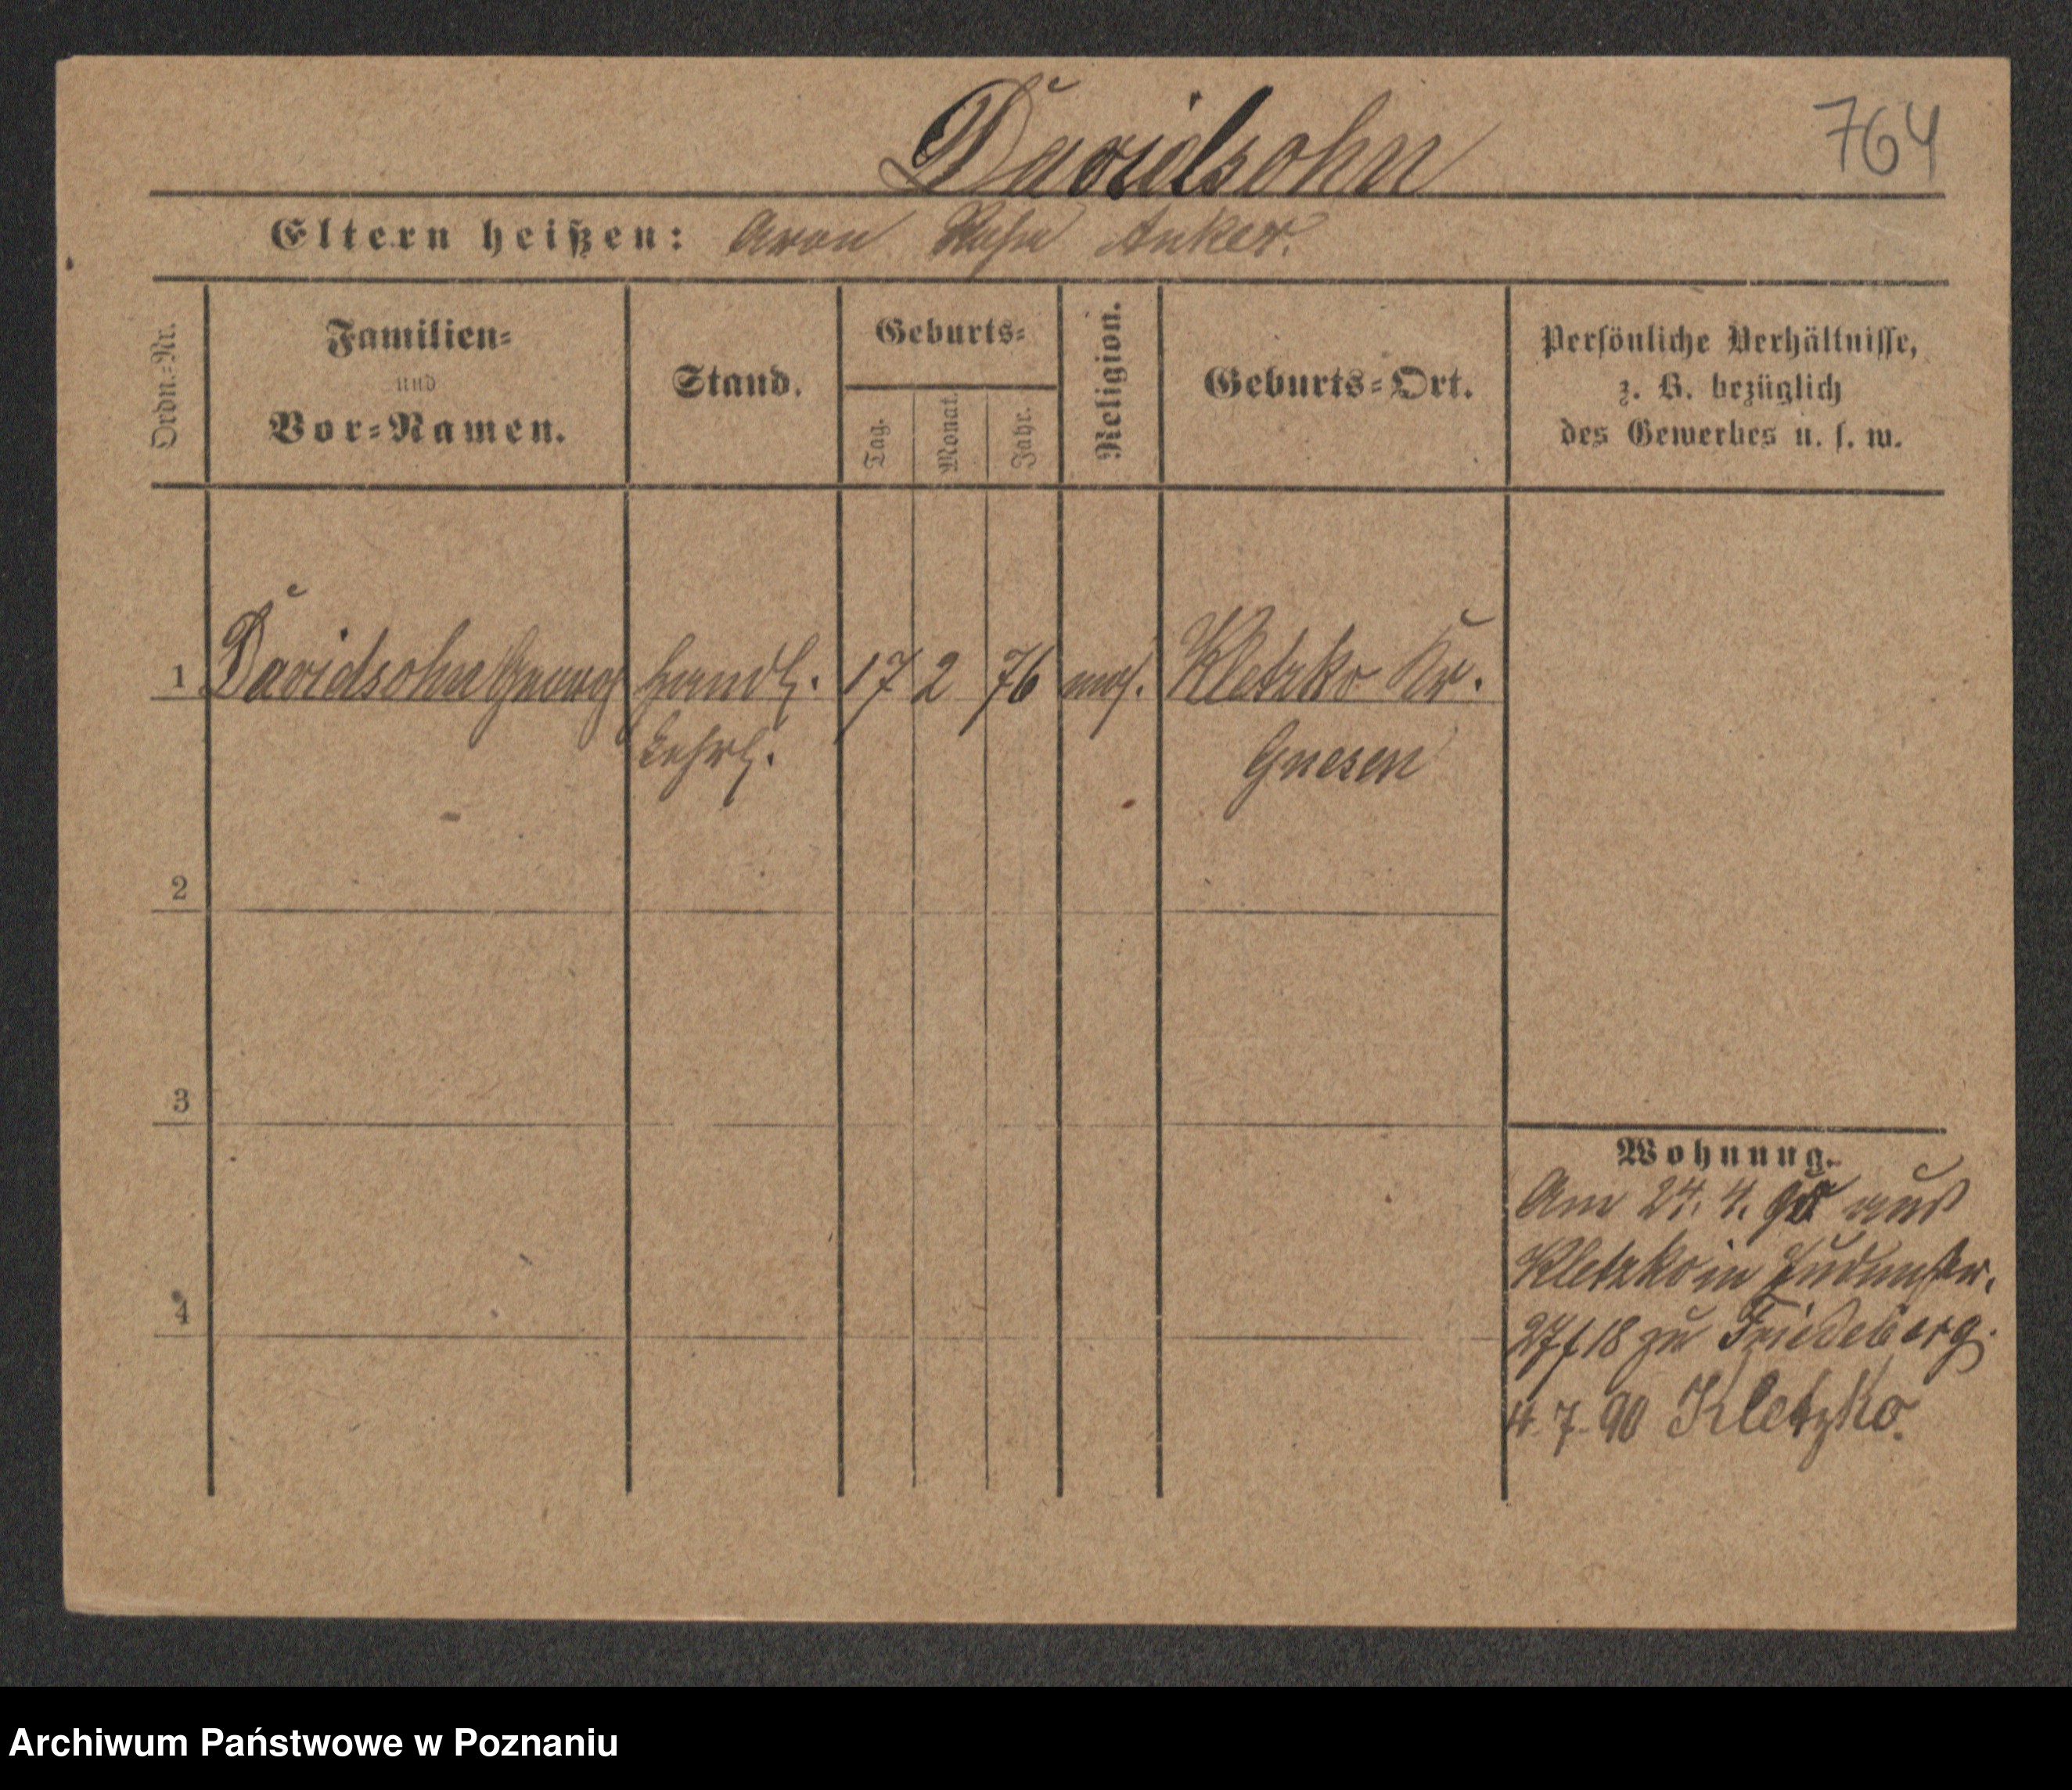 Davidsohn 764
Eltern heißen: Aron Anker.
Ordn.-Nr. Familien- und Vor-Namen. Stand. Geburts- Tag. Monat. Jahr. Religion. Geburts-Ort. Persönliche Verhältnisse, z. B. bezüglich des Gewerbes u. s. w.
1 Davidsohn Georg Handl. 17 2 76 mos. Kletzko Kr.
Lehrl. Gnesen
2
3
Wohnung.
Am 24. 4. 90 aus
Kletzko in Judenstr.
4
27/18 zu Friedeberg.
4. 7. 90 Kletzko.
Archiwum Państwowe w Poznaniu